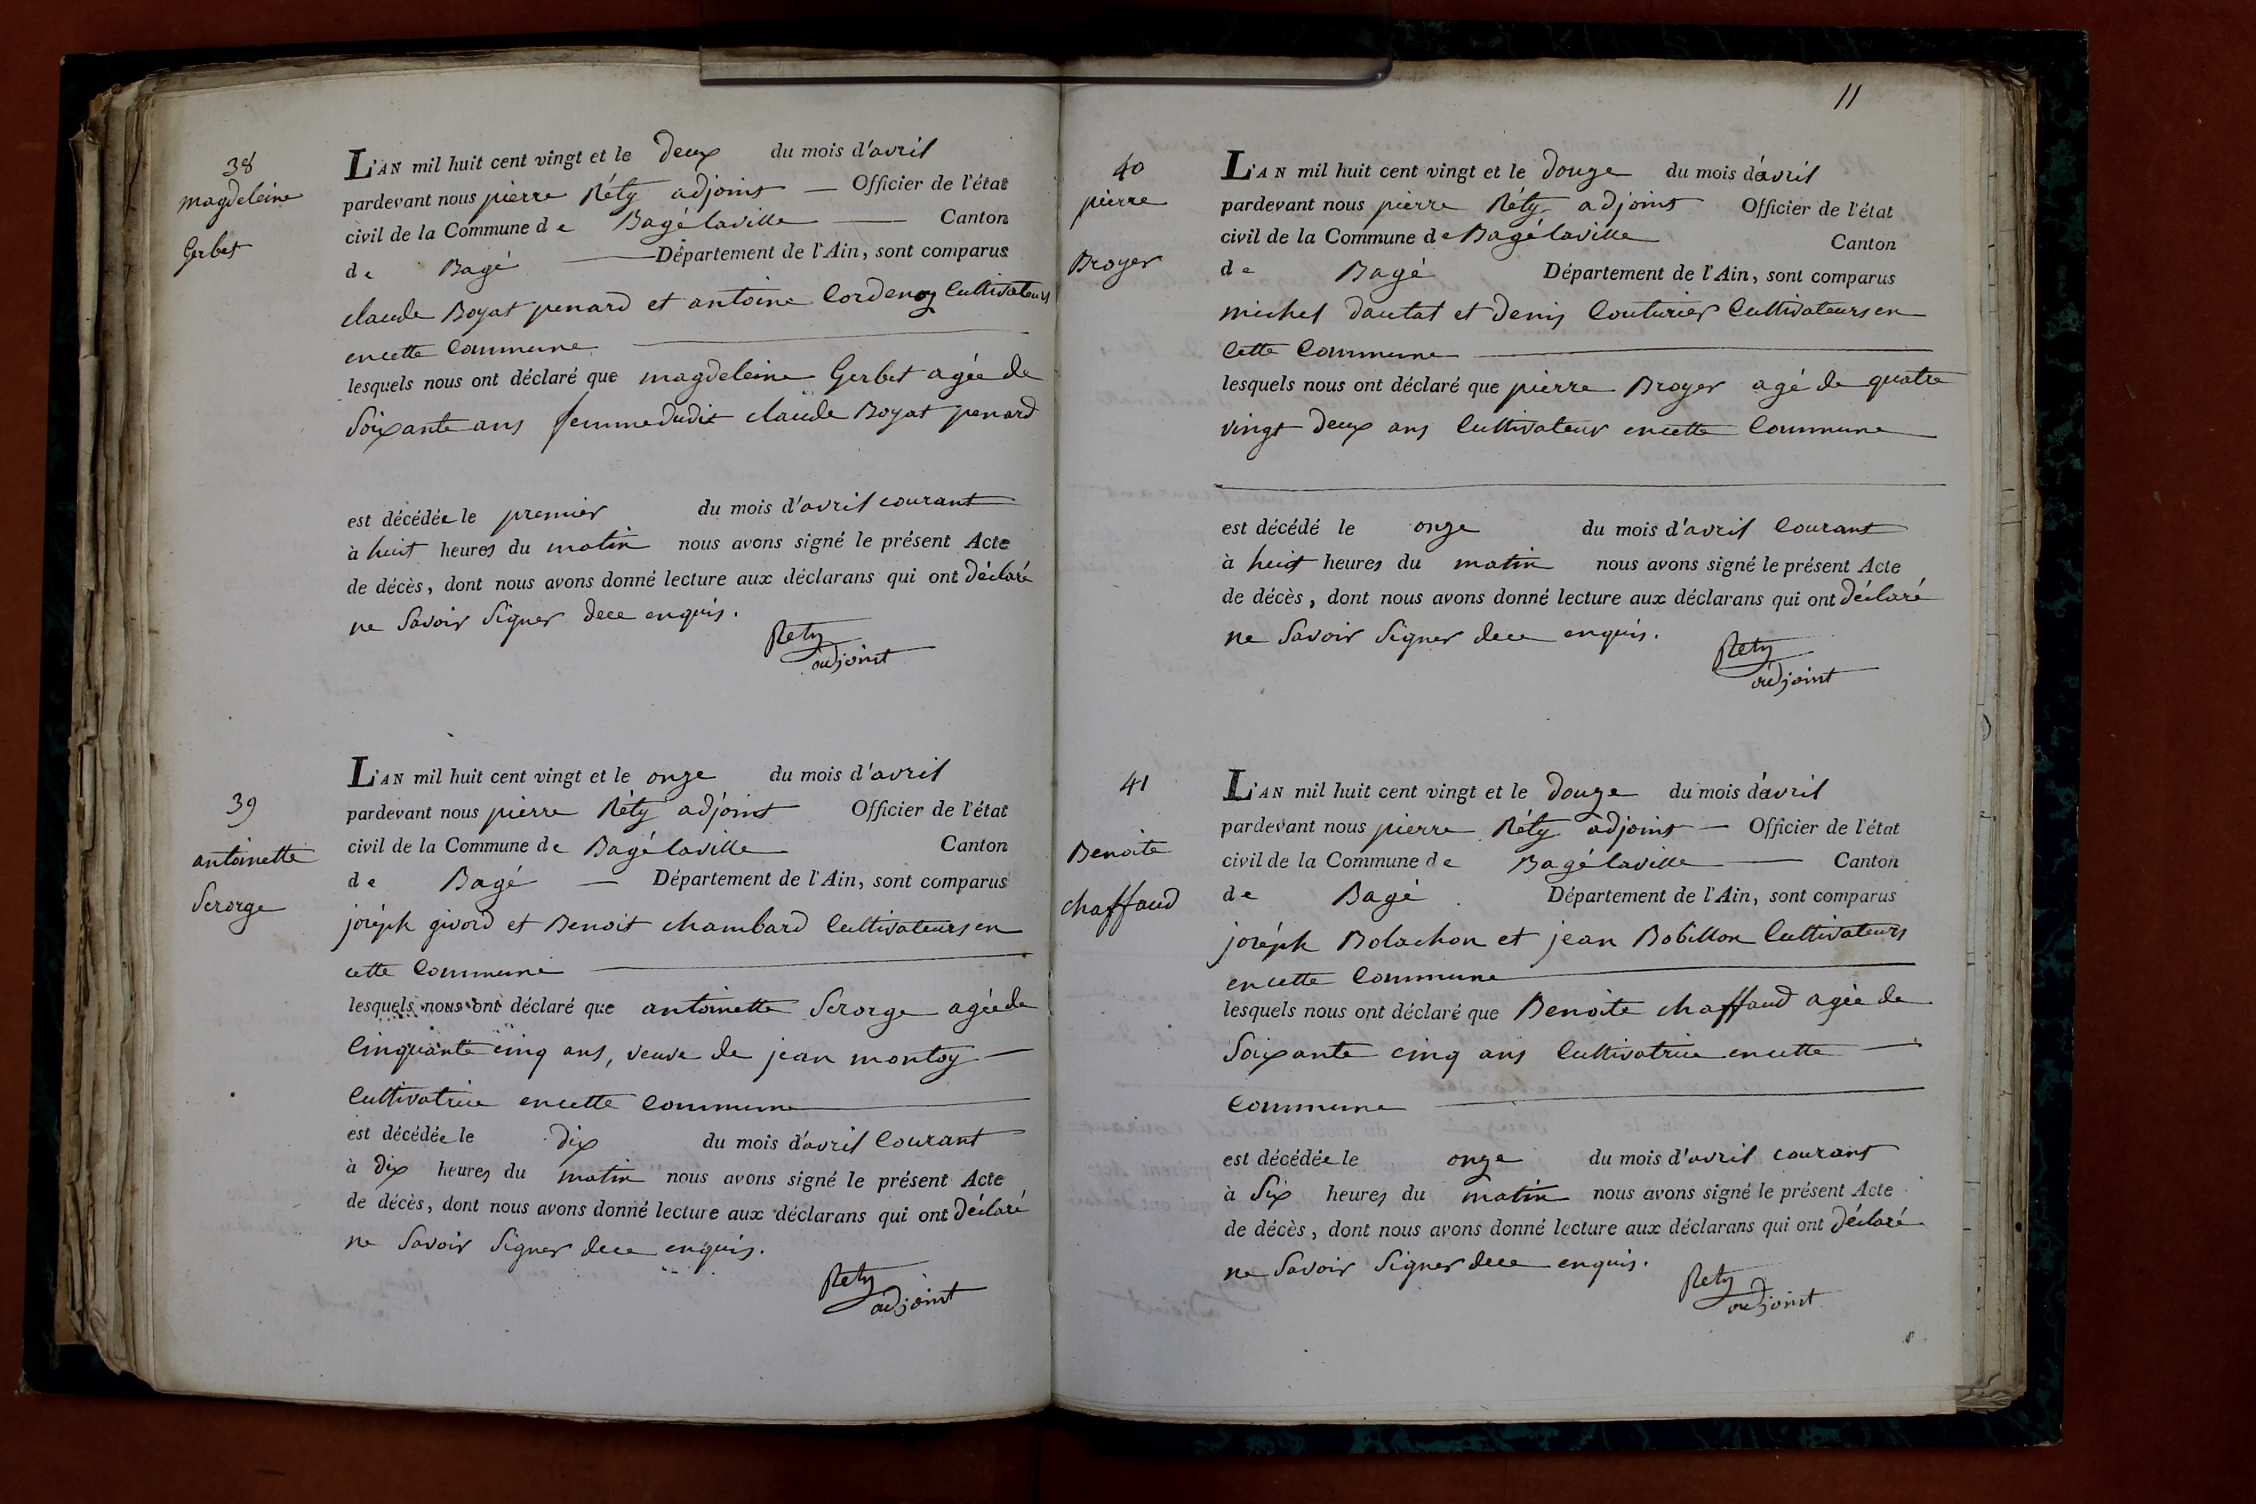 38
magdeleine
Gerbet
L'AN mil huit cent vingt et le deux du mois d'avril
pardevant nous pierre Réty adjoint — Officier de l'état
civil de la Commune de Bagé laville — Canton
de Bagé — Département de l'Ain, sont comparus
claude Boyat penard et antoine Cordenoz Cultivateurs
en cette Commune
lesquels nous ont déclaré que magdeleine Gerbet agée de
Soixante ans femme dudit claude Boyat penard
est décédée le premier du mois d'avril courant
à huit heures du matin nous avons signé le présent Acte
de décès, dont nous avons donné lecture aux déclarans qui ont déclaré
ne Savoir Signer dece enquis.
Rety
adjoint
39
antoinette
Serorge
L'AN mil huit cent vingt et le onze du mois d'avril
pardevant nous pierre Réty adjoint Officier de l'état
civil de la Commune de Bagé laville Canton
de Bagé — Département de l'Ain, sont comparus
joséph givord et Benoit chambard Cultivateurs en
cette Commune
lesquels nous ont déclaré que antoinette Serorge agée de
Cinquante cinq ans, veuve de jean montoy —
Cultivatrice en cette Commune
est décédée le dix du mois d'avril Courant
à dix heures du matin nous avons signé le présent Acte
de décès, dont nous avons donné lecture aux déclarans qui ont déclaré
ne Savoir Signer dece enquis.
Rety
adjoint
11
40
pierre
Broyer
L'AN mil huit cent vingt et le douze du mois d'avril
pardevant nous pierre Réty adjoint Officier de l'état
civil de la Commune de Bagé laville Canton
de Bagé Département de l'Ain, sont comparus
michel dautat et denis Couturier Cultivateurs en
Cette Commune
lesquels nous ont déclaré que pierre Broyer agé de quatre
vingt deux ans Cultivateur en cette Commune
est décédé le onze du mois d'avril Courant
à huit heures du matin nous avons signé le présent Acte
de décès, dont nous avons donné lecture aux déclarans qui ont déclaré
ne Savoir Signer dece enquis.
Rety
adjoint
41
Benoite
chaffaud
L'AN mil huit cent vingt et le douze du mois d'avril
pardevant nous pierre Réty adjoint — Officier de l'état
civil de la Commune de Bagé laville — Canton
de Bagé Département de l'Ain, sont comparus
joséph Bolachon et jean Bobillon Cultivateurs
en cette Commune
lesquels nous ont déclaré que Benoite chaffaud agée de
Soixante cinq ans Cultivatrice en cette —
Commune
est décédée le onze du mois d'avril courant
à Six heures du matin nous avons signé le présent Acte
de décès, dont nous avons donné lecture aux déclarans qui ont déclaré
ne Savoir Signer dece enquis.
Rety
adjoint